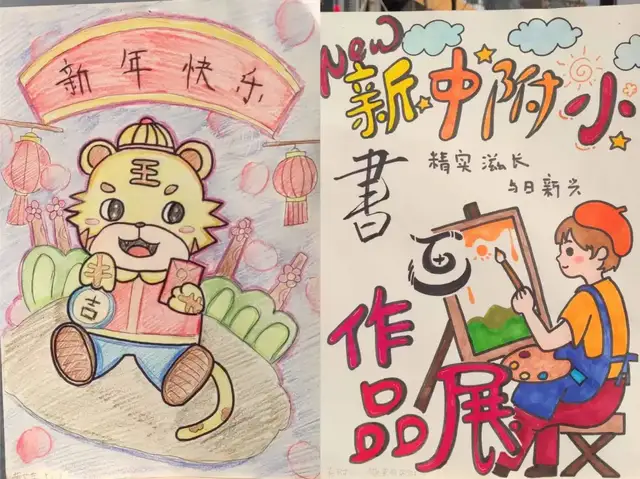 新年快乐
王
吉
New
新中附小
精实滋长
与日新兴
書画
作品展